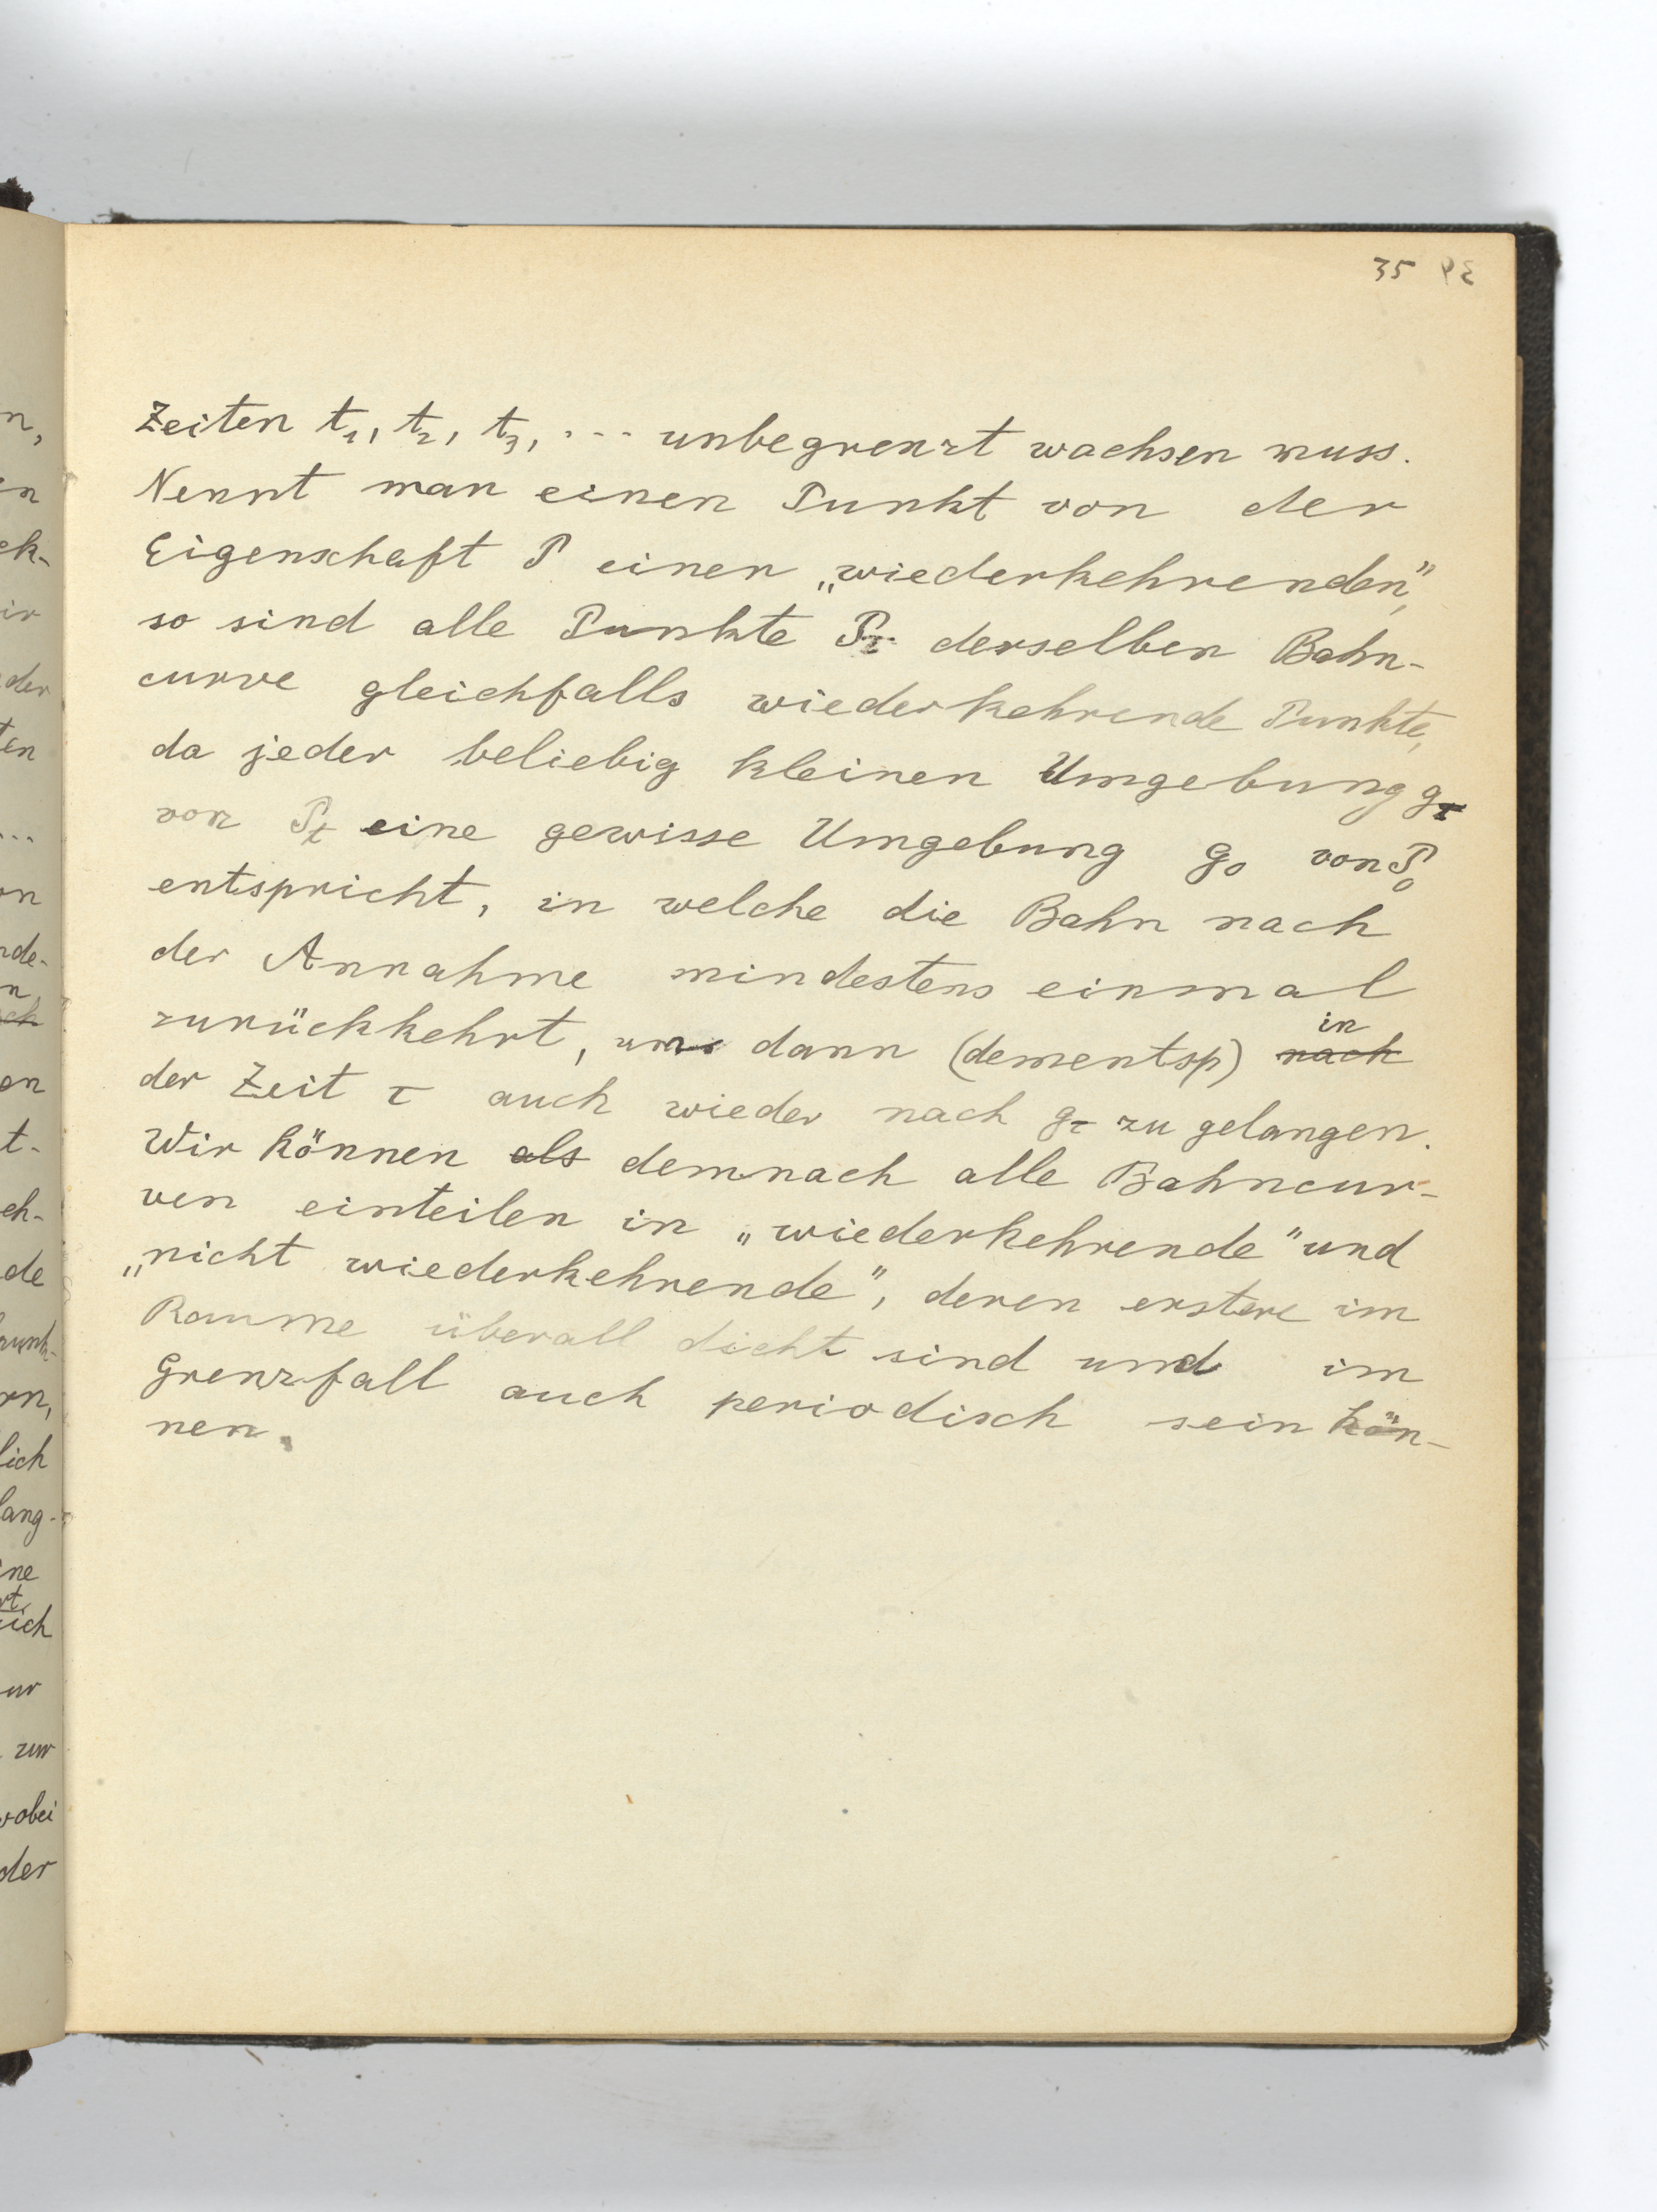 35
Zeiten t₁, t₂, t₃, ... unbegrenzt wachsen muss.
Nennt man einen Punkt von der
Eigenschaft P einen „wiederkehrenden",
so sind alle Punkte P_τ derselben Bahn-
curve gleichfalls wiederkehrende Punkte,
da jeder beliebig kleinen Umgebung g_τ
von P_t eine gewisse Umgebung g₀ von P₀
entspricht, in welche die Bahn nach
der Annahme mindestens einmal
zurückkehrt, um dann (dementsp) nach in
der Zeit τ auch wieder nach g_τ zu gelangen.
Wir können als demnach alle Bahncur-
ven einteilen in „wiederkehrende" und
„nicht wiederkehrende", deren erstere im
Raume überall dicht sind und im
Grenzfall auch periodisch sein kön-
nen.